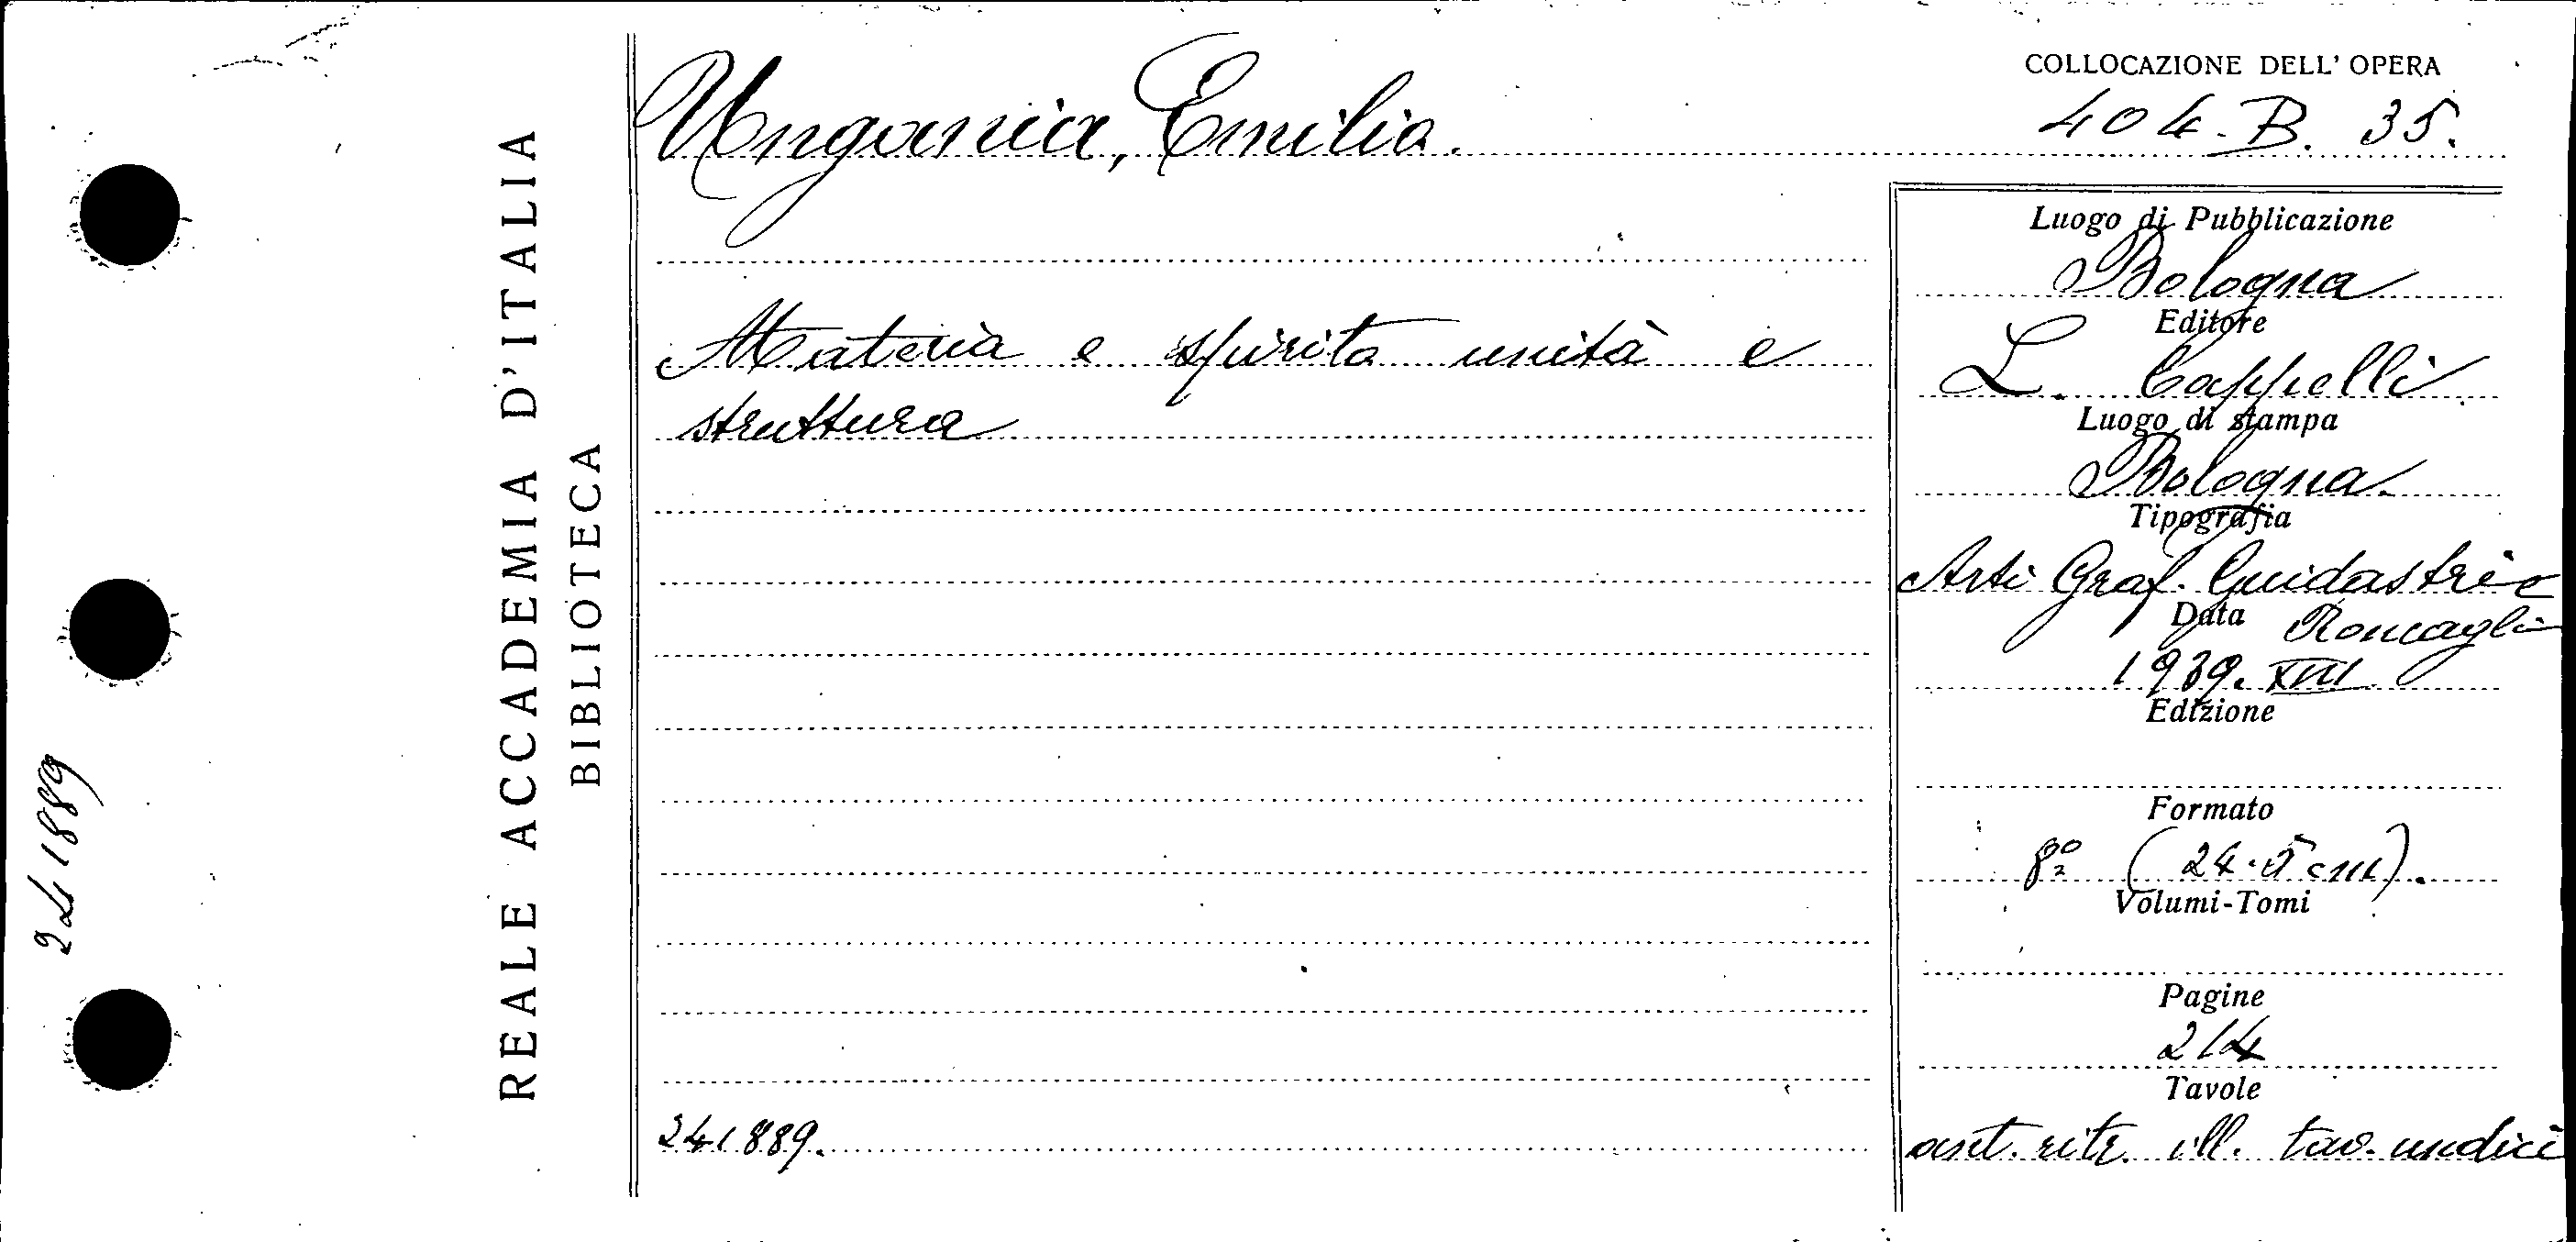 COLLOCAZIONE DELL' OPERA
404. B. 35.
Ungania, Emilia.
Materia e spirito unità e
struttura
241889.
Luogo di Pubblicazione
Bologna
Editore
L. Cappelli
Luogo di stampa
Bologna
Tipografia
Arti Graf. Guidastri e
Roncagli
Data
1939. XVII
Edizione
Formato
8º (24.5 cm).
Volumi-Tomi
Pagine
214
Tavole
ant. ritr. ill. tav. undici
REALE ACCADEMIA D'ITALIA
BIBLIOTECA
241889